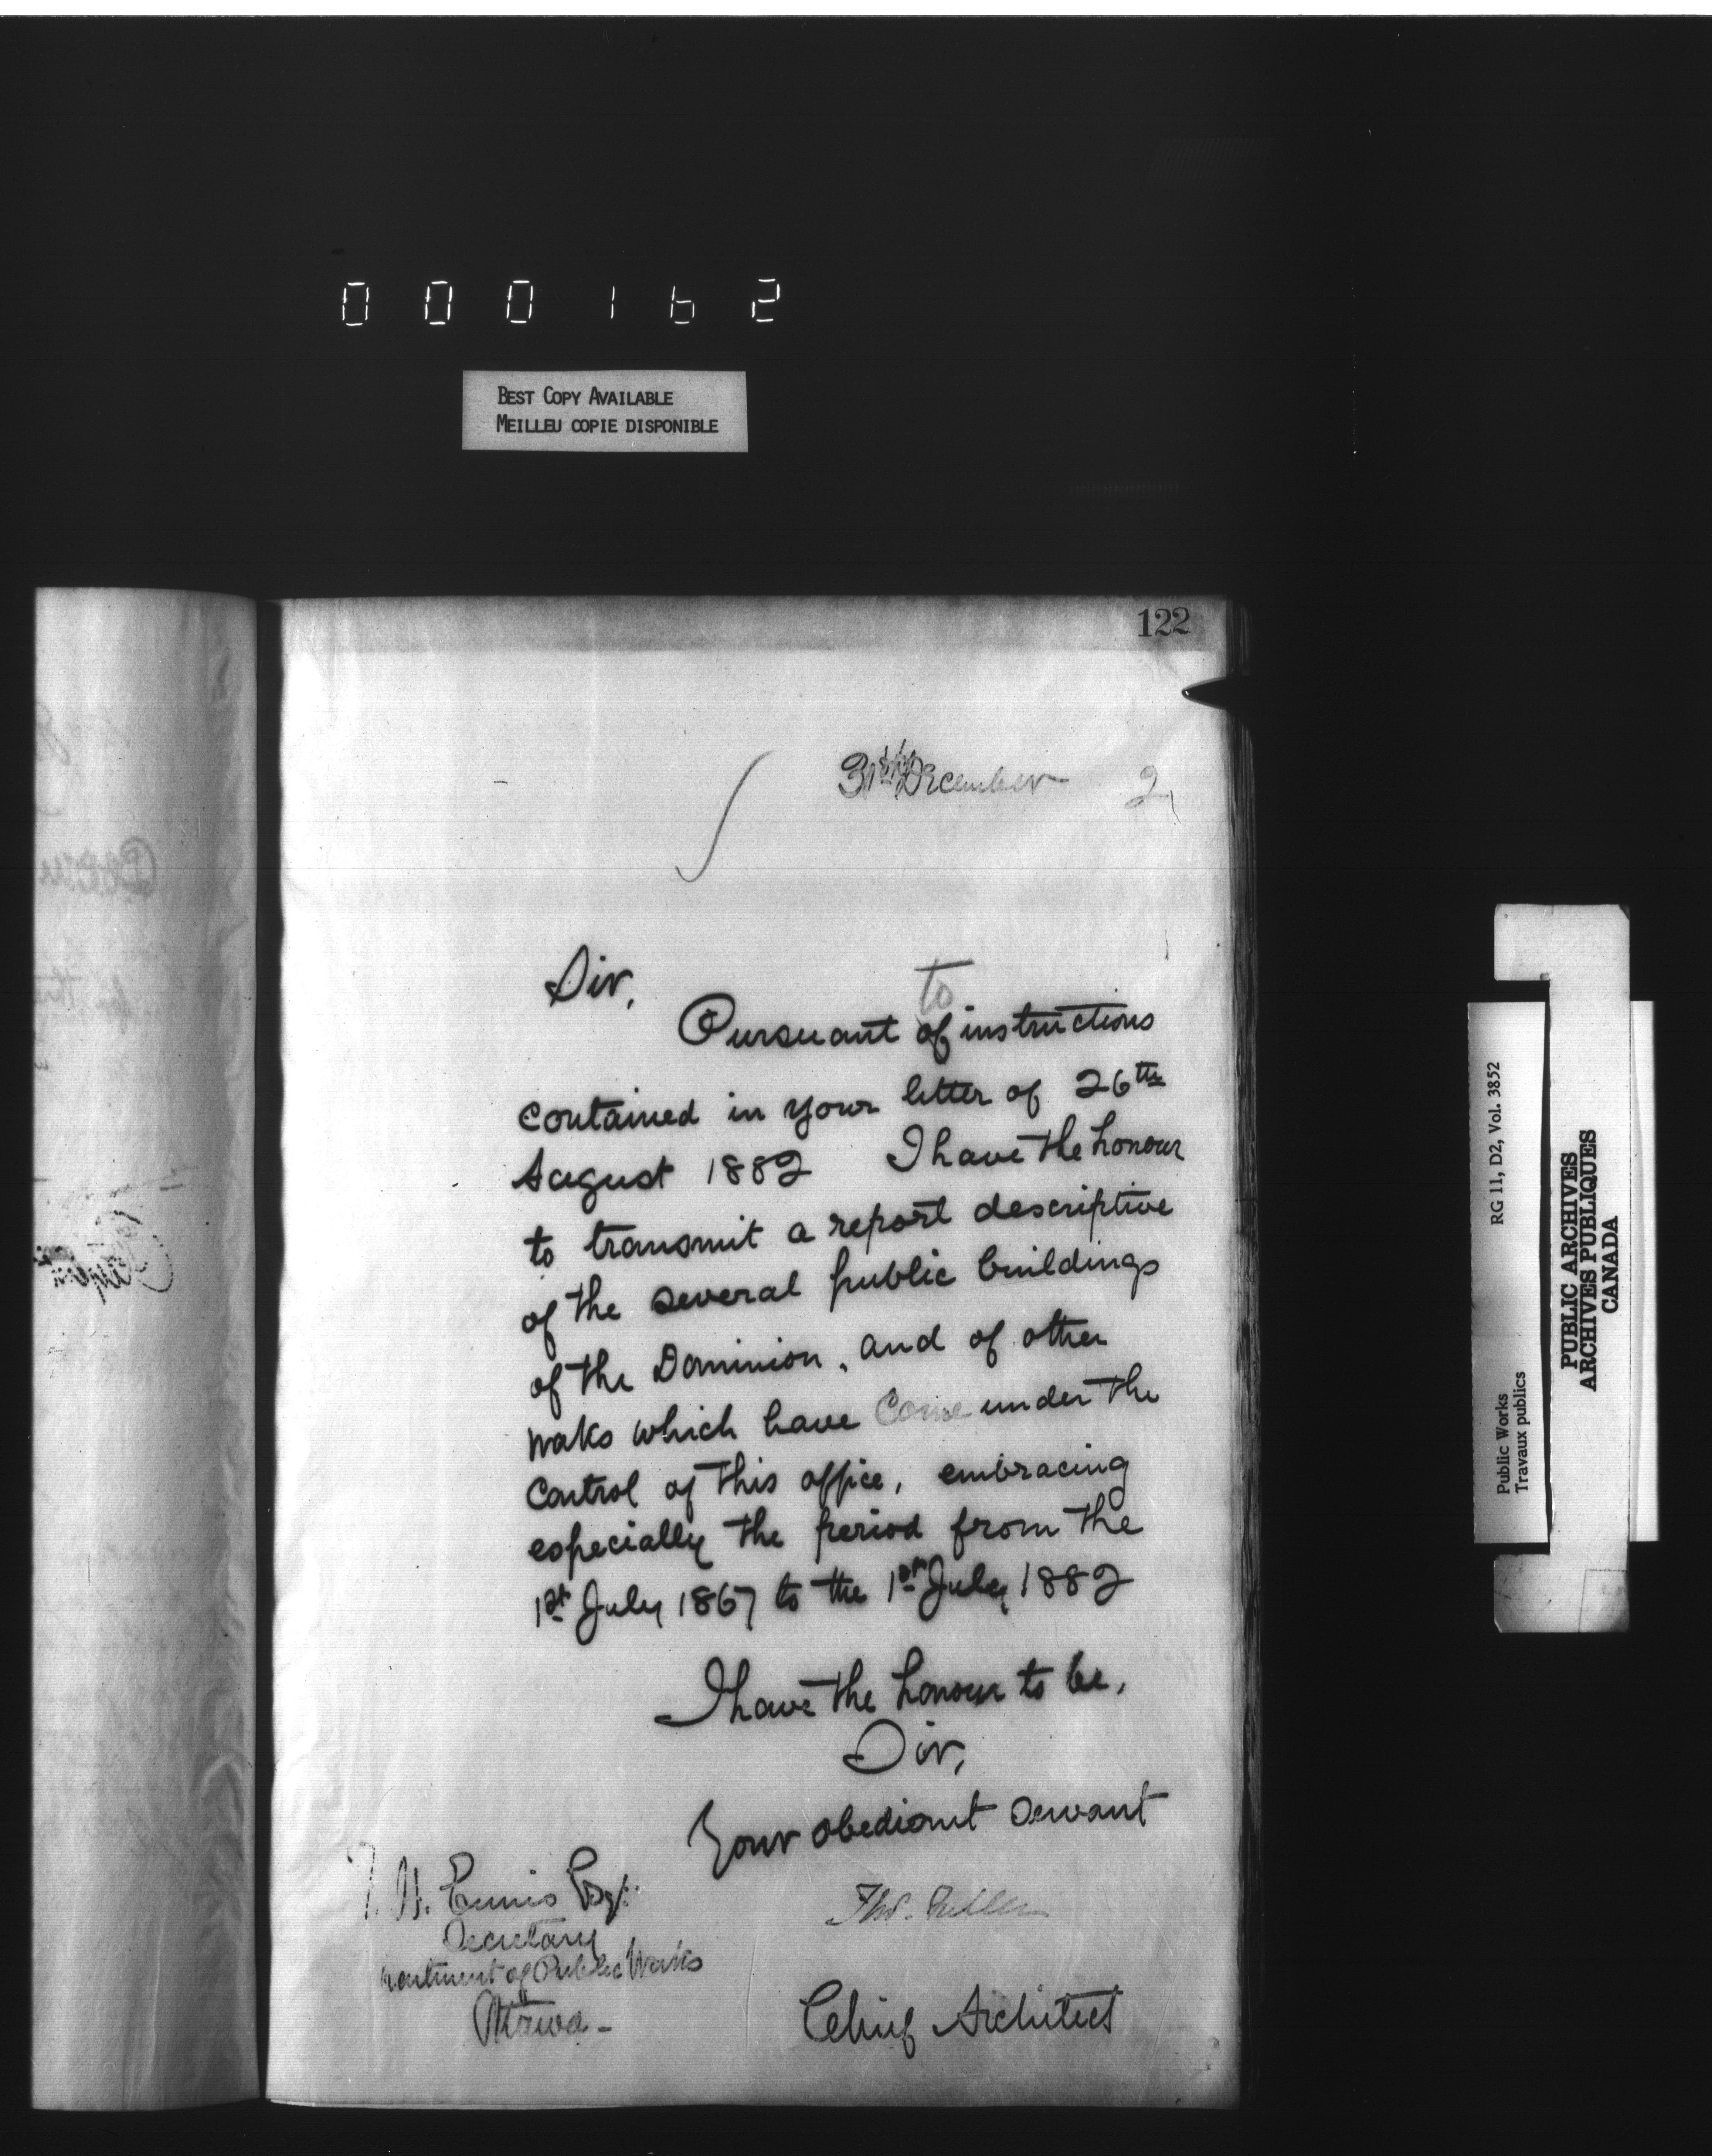 000162
BEST COPY AVAILABLE
MEILLEU COPIE DISPONIBLE
122
31st December 2
Sir,
to
Pursuant of instructions
contained in your letter of 26th
August 1882 I have the honour
to transmit a report descriptive
of the several public buildings
of the Dominion, and of other
works which have come under the
control of this office, embracing
especially the period from the
1st July 1867 to the 1st July 1882
I have the honour to be,
Sir,
Your obedient servant
Thos. Fuller
Chief Architect
F. H. Ennis Esqr.
Secretary
partment of Public Works
Ottawa -
RG 11, D2, Vol. 3852
Public Works
Travaux publics
PUBLIC ARCHIVES
ARCHIVES PUBLIQUES
CANADA